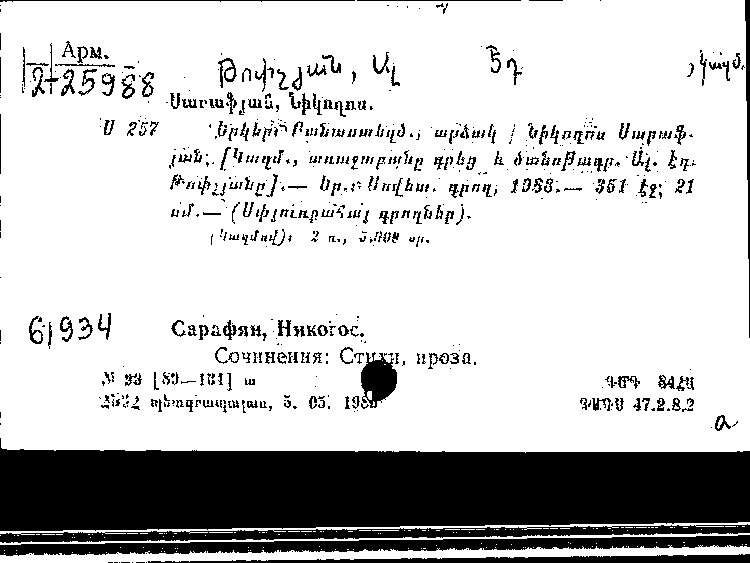 Арм.
2-25988
Թոփչյան, Ալ Եդ , կազմ.
Սարաֆյան, Նիկողոս.
Ս 257 Երկեր: Բանաստեղծ., արձակ / Նիկողոս Սարաֆ-
յան; [Կազմ., առաջաբանը գրեց և ծանոթագր. Ալ. Էդ.
Թոփչյանը].— Եր.: Սովետ. գրող, 1988.— 351 էջ; 21
սմ.— (Սփյուռքահայ գրողներ).
(Կազմով): 2 ռ., 5.000 օր.
61934 Сарафян, Никогос.
Сочинения: Стихи, проза.
№ 93 [89—131] ա ԳՄԴ 84Հ8
ՀՍՍՀ պետգրապալատ, 5. 05. 198 ԳԱԴՍ 47.2.8.2
a